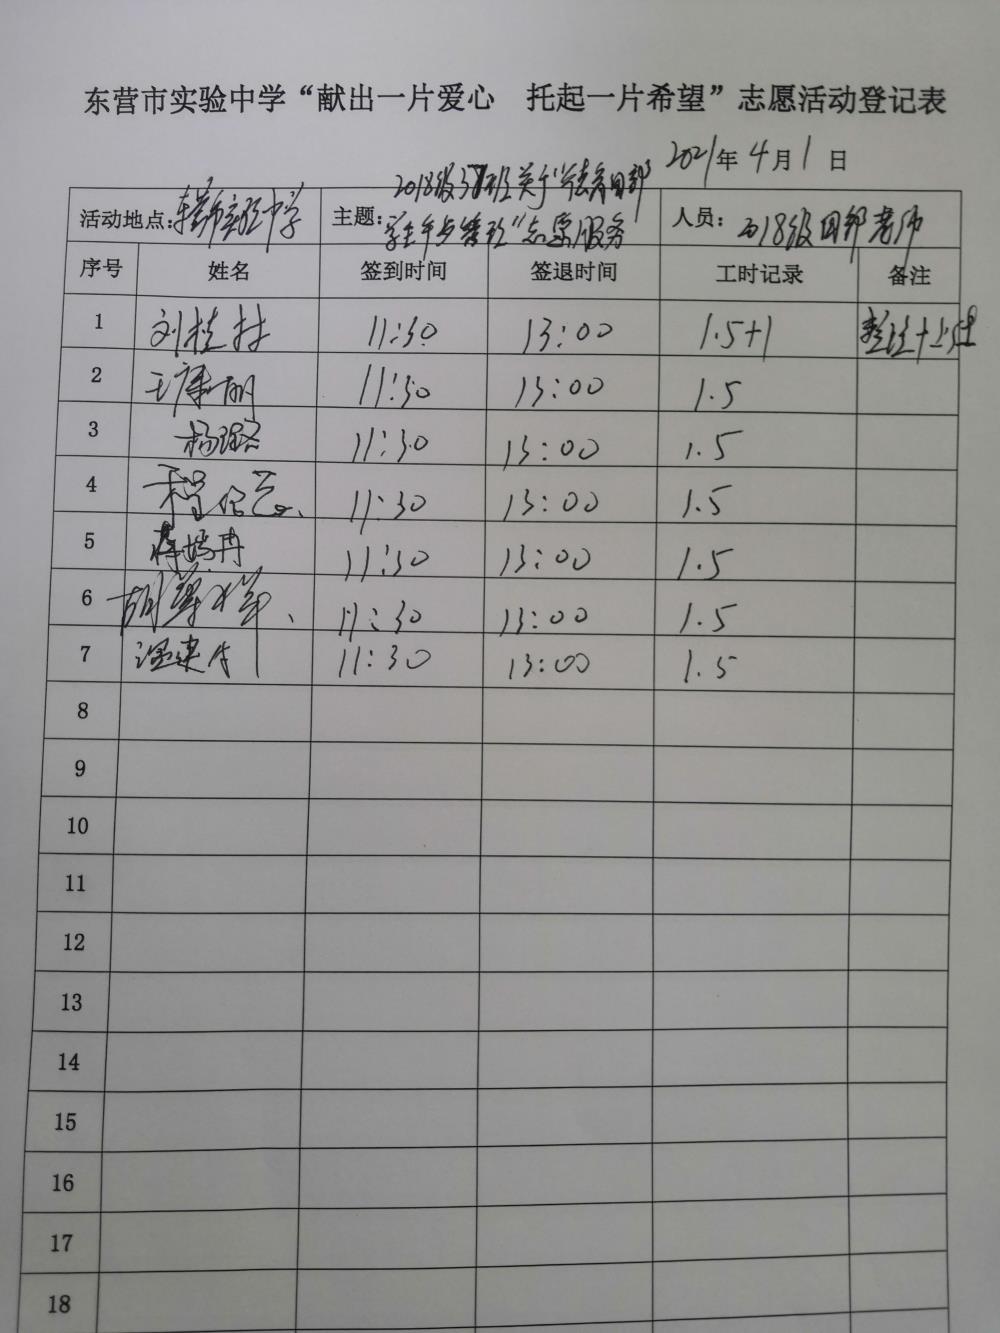 东营市实验中学“献出一片爱心 托起一片希望”志愿活动登记表
2021年4月1日
活动地点:东营市实验中学 主题:2018级 班关于 学生 志愿服务 人员: 2018级 老师
序号 姓名 签到时间 签退时间 工时记录 备注
1 刘桂林 11:30 13:00 1.5+1 整理+上传
2 王康丽 11:30 13:00 1.5
3 杨 11:30 13:00 1.5
4 程 11:30 13:00 1.5
5 11:30 13:00 1.5
6 胡 11:30 13:00 1.5
7 温建 11:30 13:00 1.5
8
9
10
11
12
13
14
15
16
17
18